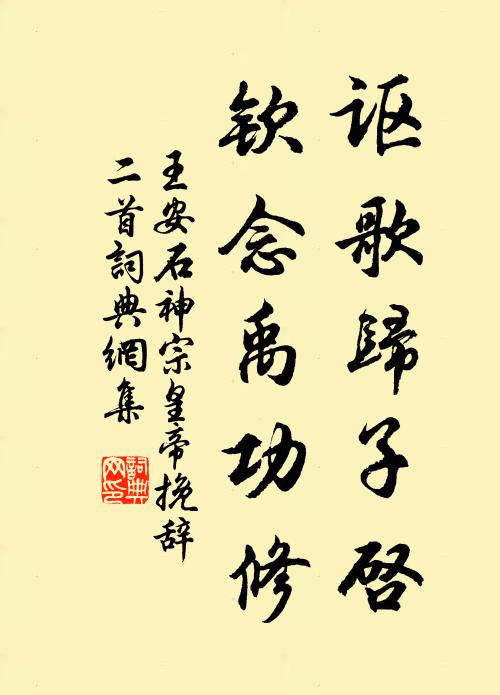 讴歌歸子啓
欽念禹功修
王安石神宗皇帝挽辞
二首詞典網集
詞典
网印